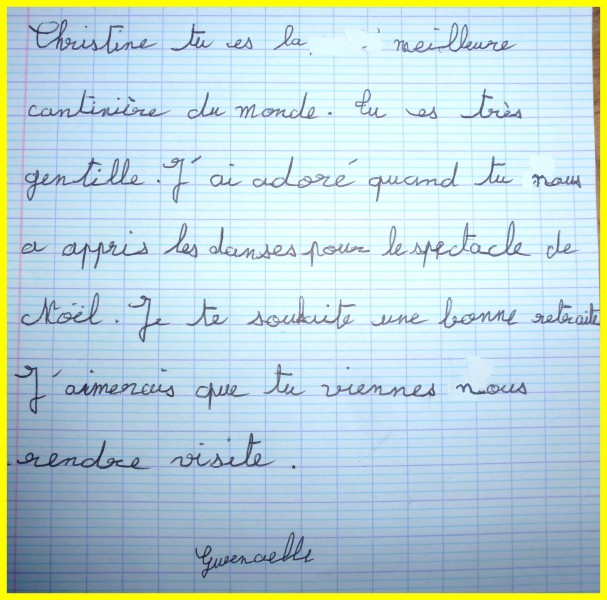 Christine tu es la meilleure
cantinière du monde. tu es très
gentille. J'ai adoré quand tu nous
a appris les danses pour le spectacle de
Noël. Je te souhaite une bonne retraite
J'aimerais que tu viennes nous
rendre visite.
Gwenaelle